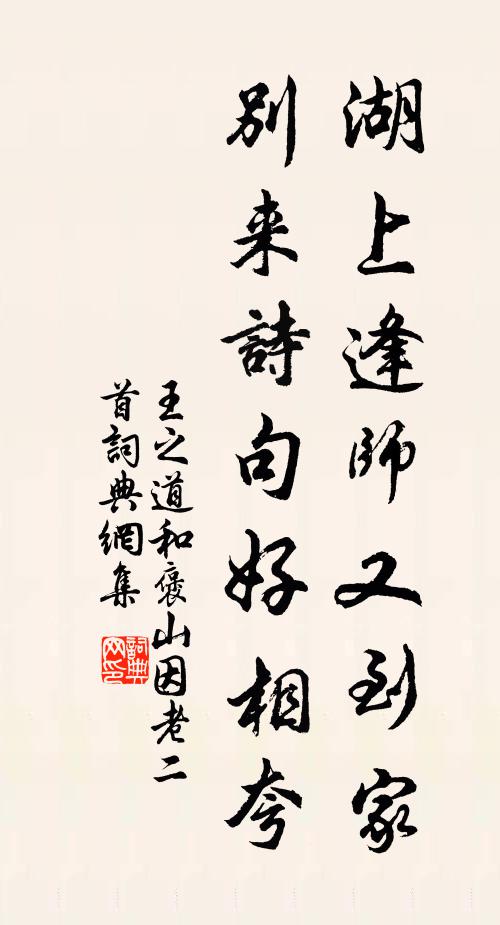 湖上逢師又到家
別来詩句好相夸
王之道和褒山因老二
首詞典網集
詞典
网印